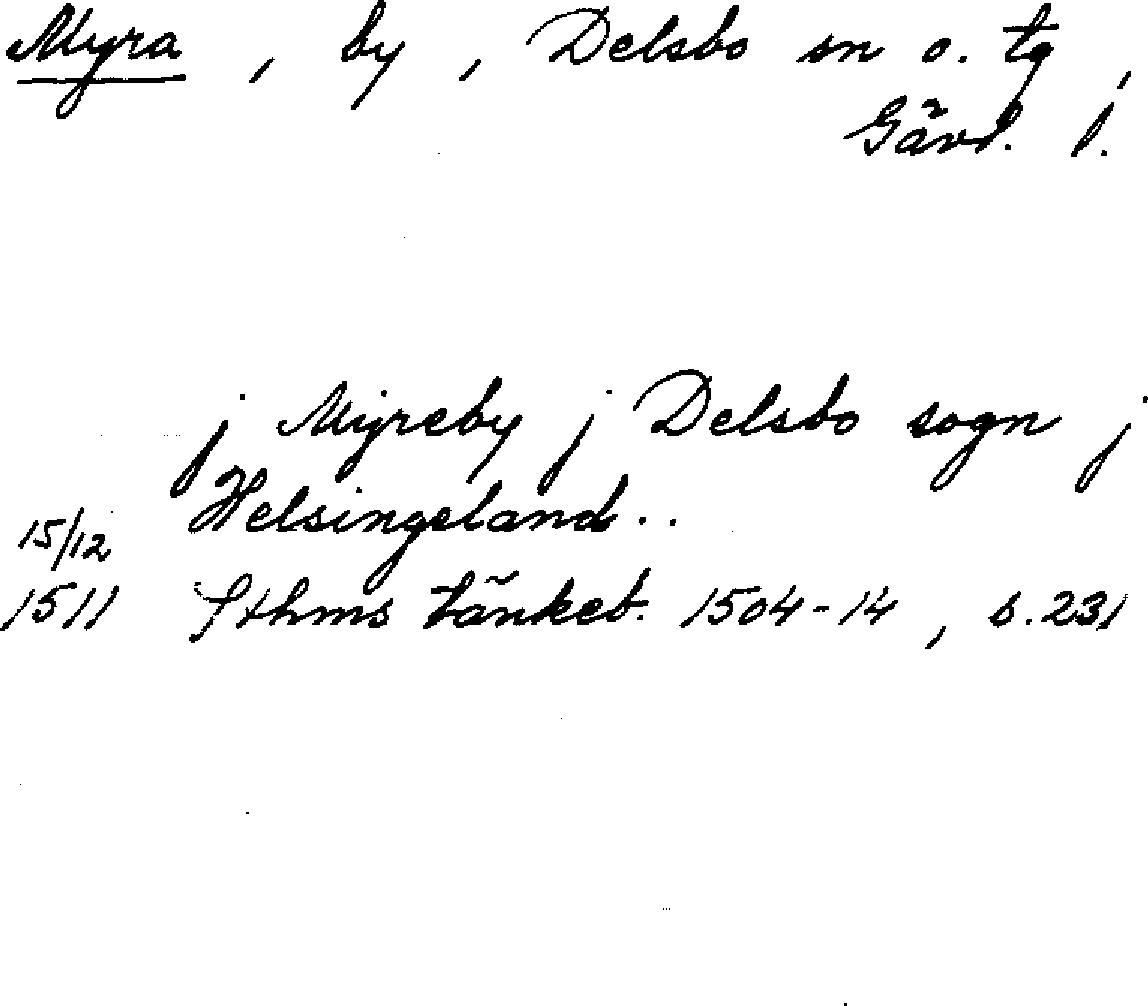 Myra, by, Delsbo sn o. tg,
Gävl. l.
j Myreby j Delsbo sogn j
Helsingeland..
15/12
1511 Sthms tänkeb. 1504-14, s. 231